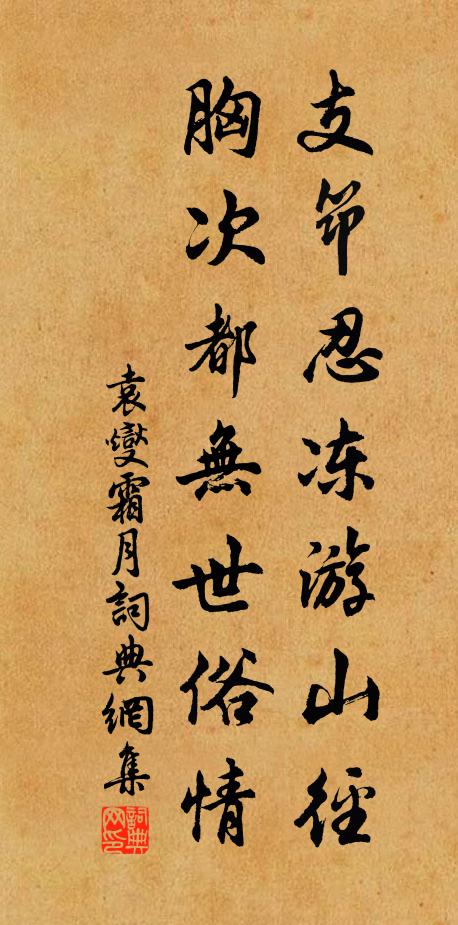 支笻忍冻游山径
胸次都無世俗情
袁燮霜月詞典網集
詞典网印